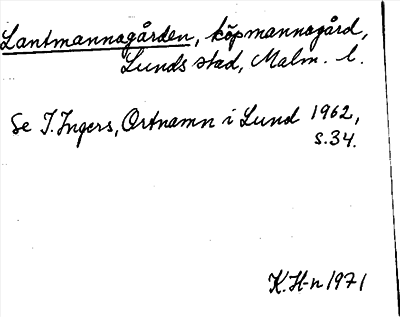 Lantmannagården, köpmannagård,
Lunds stad, Malm. l.
Se I. Ingers, Ortnamn i Lund 1962,
s. 34.
K. H-n 1971